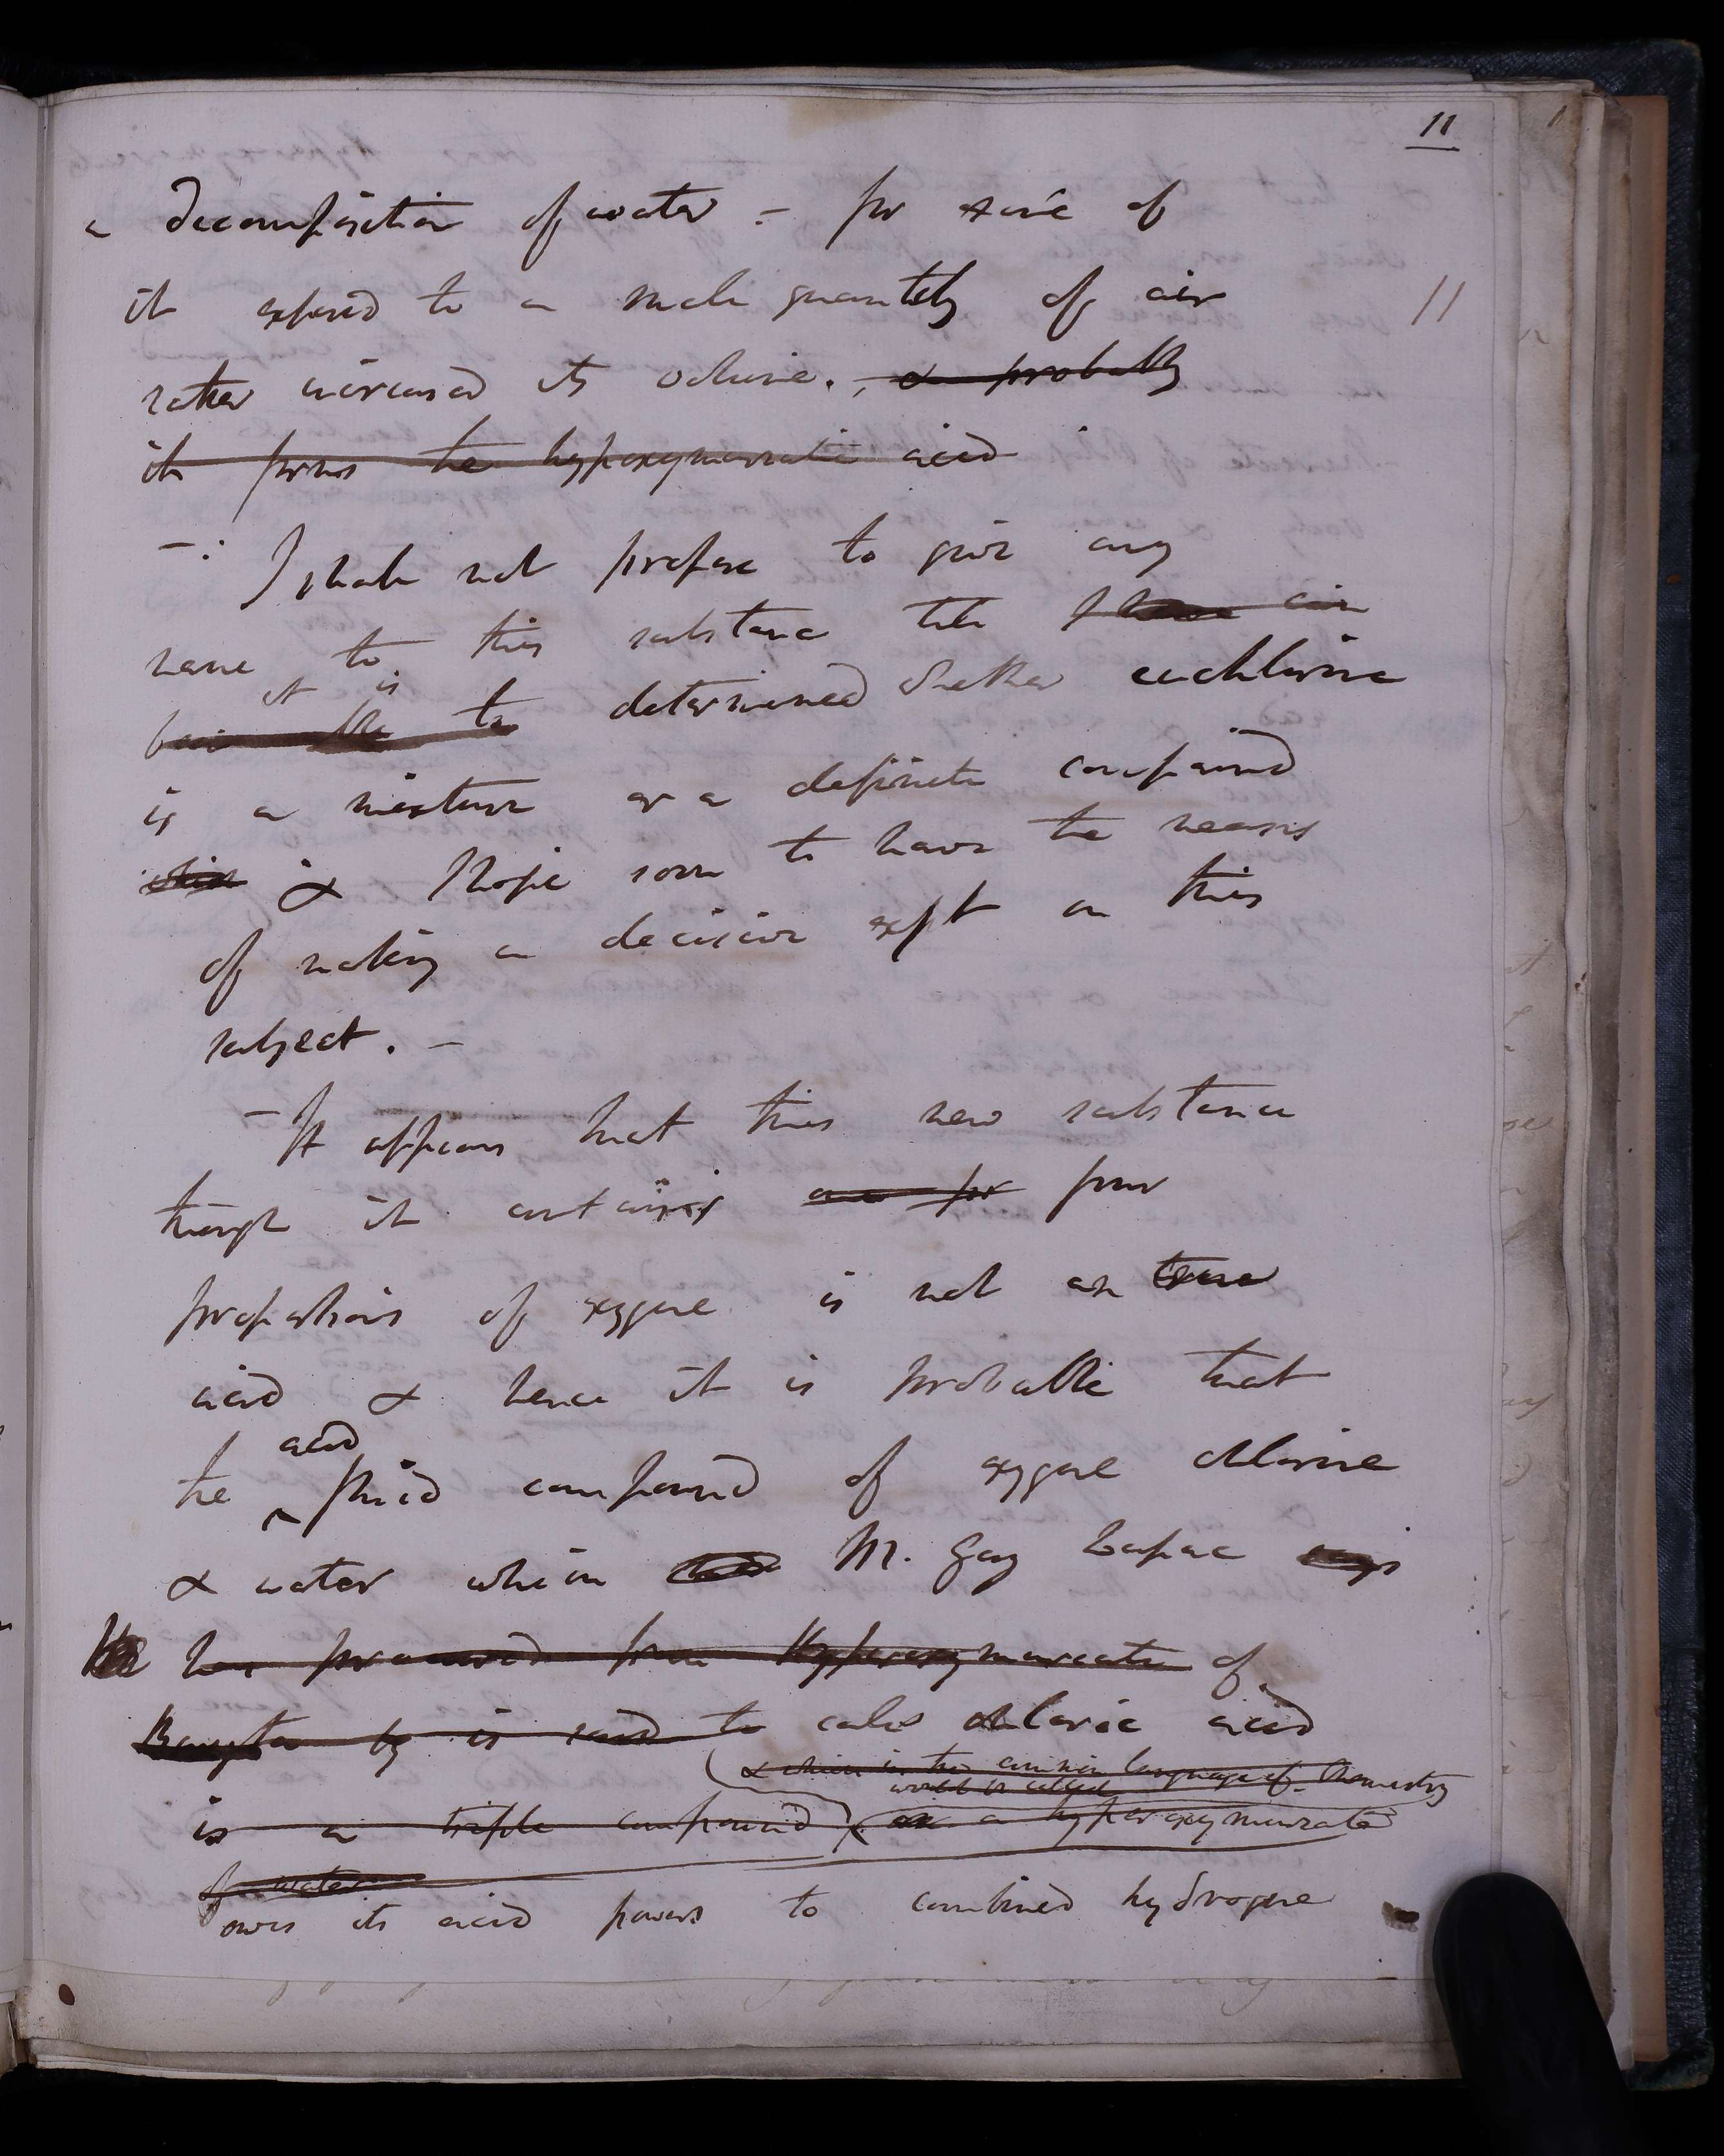 11
a decomposition of water - for some of
it exposed to a small quantity of air
11
rather increased its volume. , & probably
it forms the hyperoxymuriatic acid
-. I shall not propose to give any
name to this substance till I have
it is
been able to determined whether euchlorine
is a mixture or a definite compound
which & I hope soon to have the means
of making a decision expt on this
subject. -
- It appears that this new substance
though it contains four
proportions of oxygene is not an true
acid & hence it is probable that
acid
the ^ fluid compound of oxygene chlorine
& water which M. Gay Lussac says
has procured from Hyperoxymuriate of
Barytes by is said to calls chloric acid
& which in the common language of Chemistry
would be called
is a triple compound or a hyperoxymuriate
of water
owes its acid powers to combined hydrogene